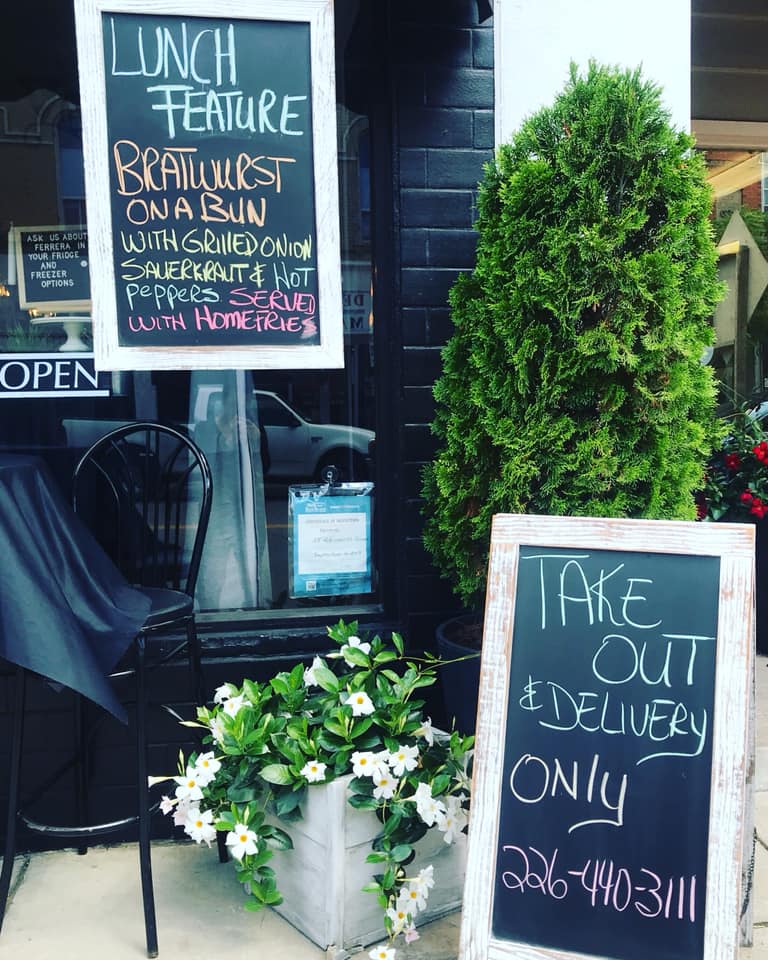 LUNCH
FEATURE
BRATWURST
ON A BUN
WITH GRILLED ONION
SAUERKRAUT & HOT
PEPPERS. SERVED
WITH HOMEFRIES
ASK US ABOUT
FERRERA IN
YOUR FRIDGE
AND
FREEZER
OPTIONS
OPEN
TAKE
OUT
& DELIVERY
ONLY
226-440-3111